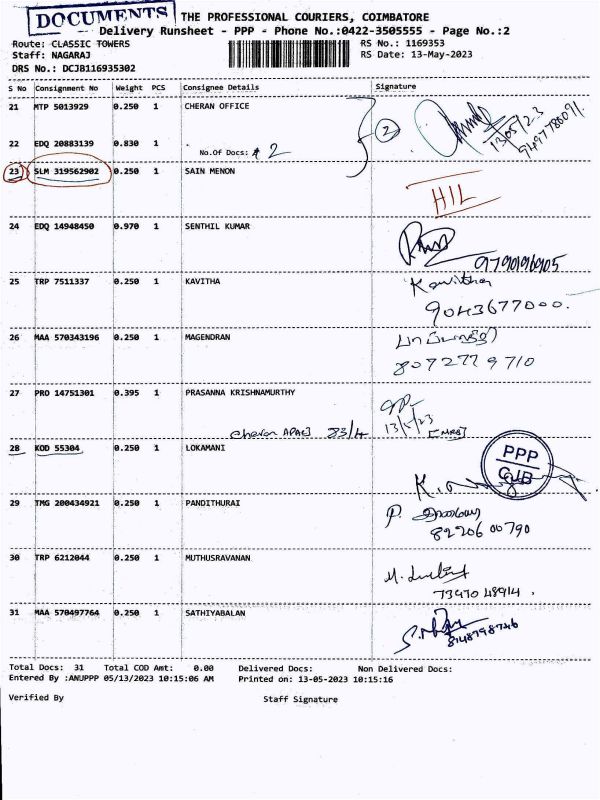 DOCUMENTS
THE PROFESSIONAL COURIERS, COIMBATORE
Delivery Runsheet - PPP - Phone No.:0422-3505555 - Page No.:2
Route: CLASSIC TOWERS RS No.: 1169353
Staff: NAGARAJ RS Date: 13-May-2023
DRS No.: DCJB116935302
S No Consignment No Weight PCS Consignee Details Signature
21 MTP 5013929 0.250 1 CHERAN OFFICE
2 13/05/23
22 EDQ 20883139 0.830 1 .
No.Of Docs: 2
23 SLM 319562902 0.250 1 SAIN MENON
HIL
24 EDQ 14948450 0.970 1 SENTHIL KUMAR
25 TRP 7511337 0.250 1 KAVITHA Kavitha
9043677000.
26 MAA 570343196 0.250 1 MAGENDRAN
8072779710
27 PRO 14751301 0.395 1 PRASANNA KRISHNAMURTHY
13/5/23
83/4
28 KOD 55304 0.250 1 LOKAMANI
PPP
CJB
29 TMG 200434921 0.250 1 PANDITHURAI P.
8220600790
30 TRP 6212044 0.250 1 MUTHUSRAVANAN
7397048914.
31 MAA 570497764 0.250 1 SATHIYABALAN
8148798746
Total Docs: 31 Total COD Amt: 0.00 Delivered Docs: Non Delivered Docs:
Entered By :ANUPPP 05/13/2023 10:15:06 AM Printed on: 13-05-2023 10:15:16
Verified By Staff Signature